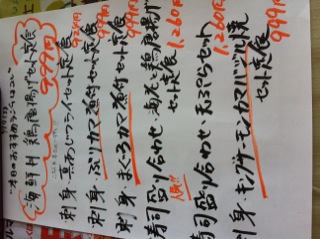 本日のおすすめランチはコレ
海鮮丼 鶏唐揚げセット定食 999円
刺身・真あじフライセット定食 924円
刺身・ぶりカマ煮付セット定食 999円
刺身・まぐろカマ煮付セット定食 999円
寿司盛り合わせ・海老と鶏唐揚げセット定食 1,260円
人気!!
寿司盛り合わせ・天ぷらセット 1,260円
刺身・キングサーモンカマ 焼セット定食 999円